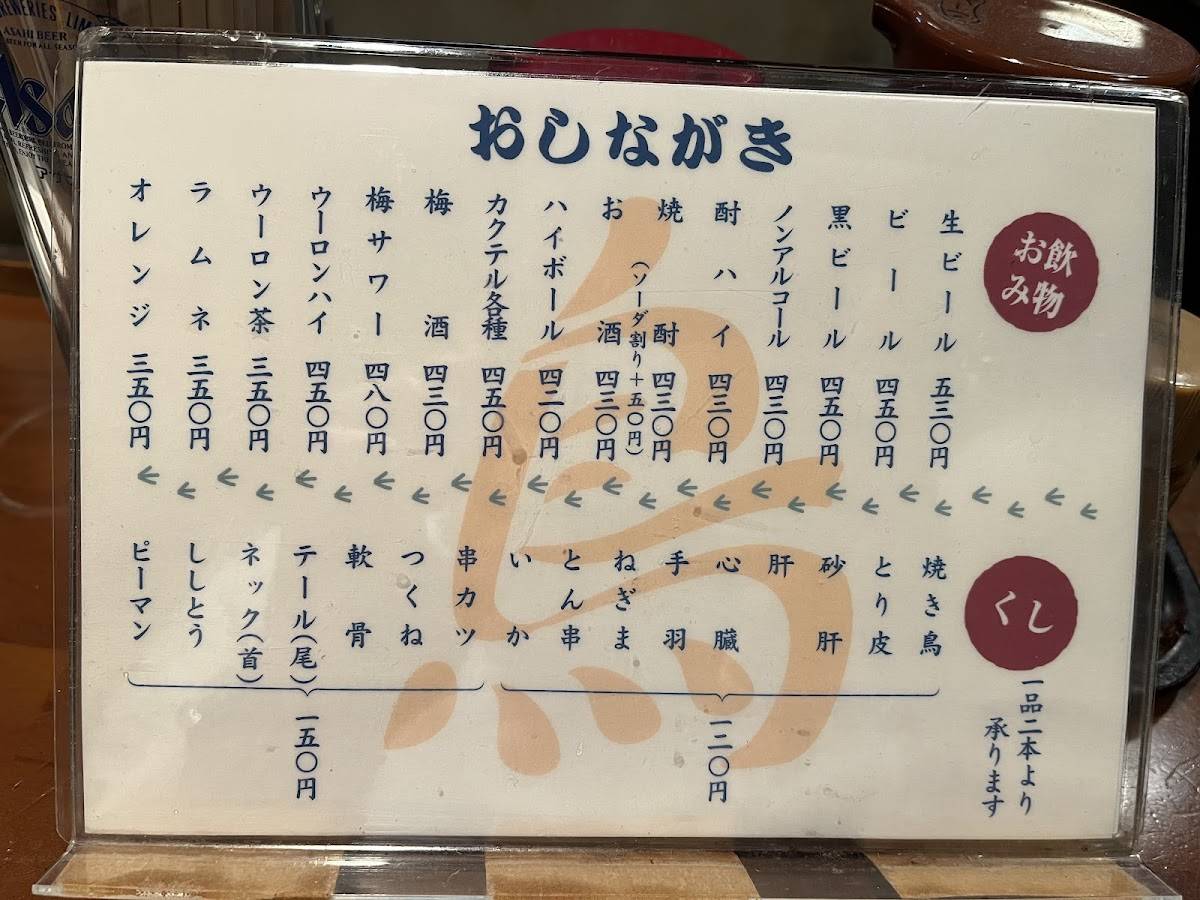 おしながき
お飲み物
生ビール 五三〇円
ビール 四五〇円
黒ビール 四五〇円
ノンアルコール 四三〇円
酎ハイ 四三〇円
焼酎 四三〇円
(ソーダ割り+五〇円)
お酒 四三〇円
ハイボール 四三〇円
カクテル各種 四五〇円
梅酒 四三〇円
梅サワー 四八〇円
ウーロンハイ 四五〇円
ウーロン茶 三五〇円
ラムネ 三五〇円
オレンジ 三五〇円
くし
一品二本より
承ります
焼き鳥
とり皮
砂肝
肝
心臓
手羽
ねぎま
とん串
いか
一二〇円
串カツ
つくね
軟骨
テール(尾)
ネック(首)
ししとう
ピーマン
一五〇円
鳥
ASAHI BEER